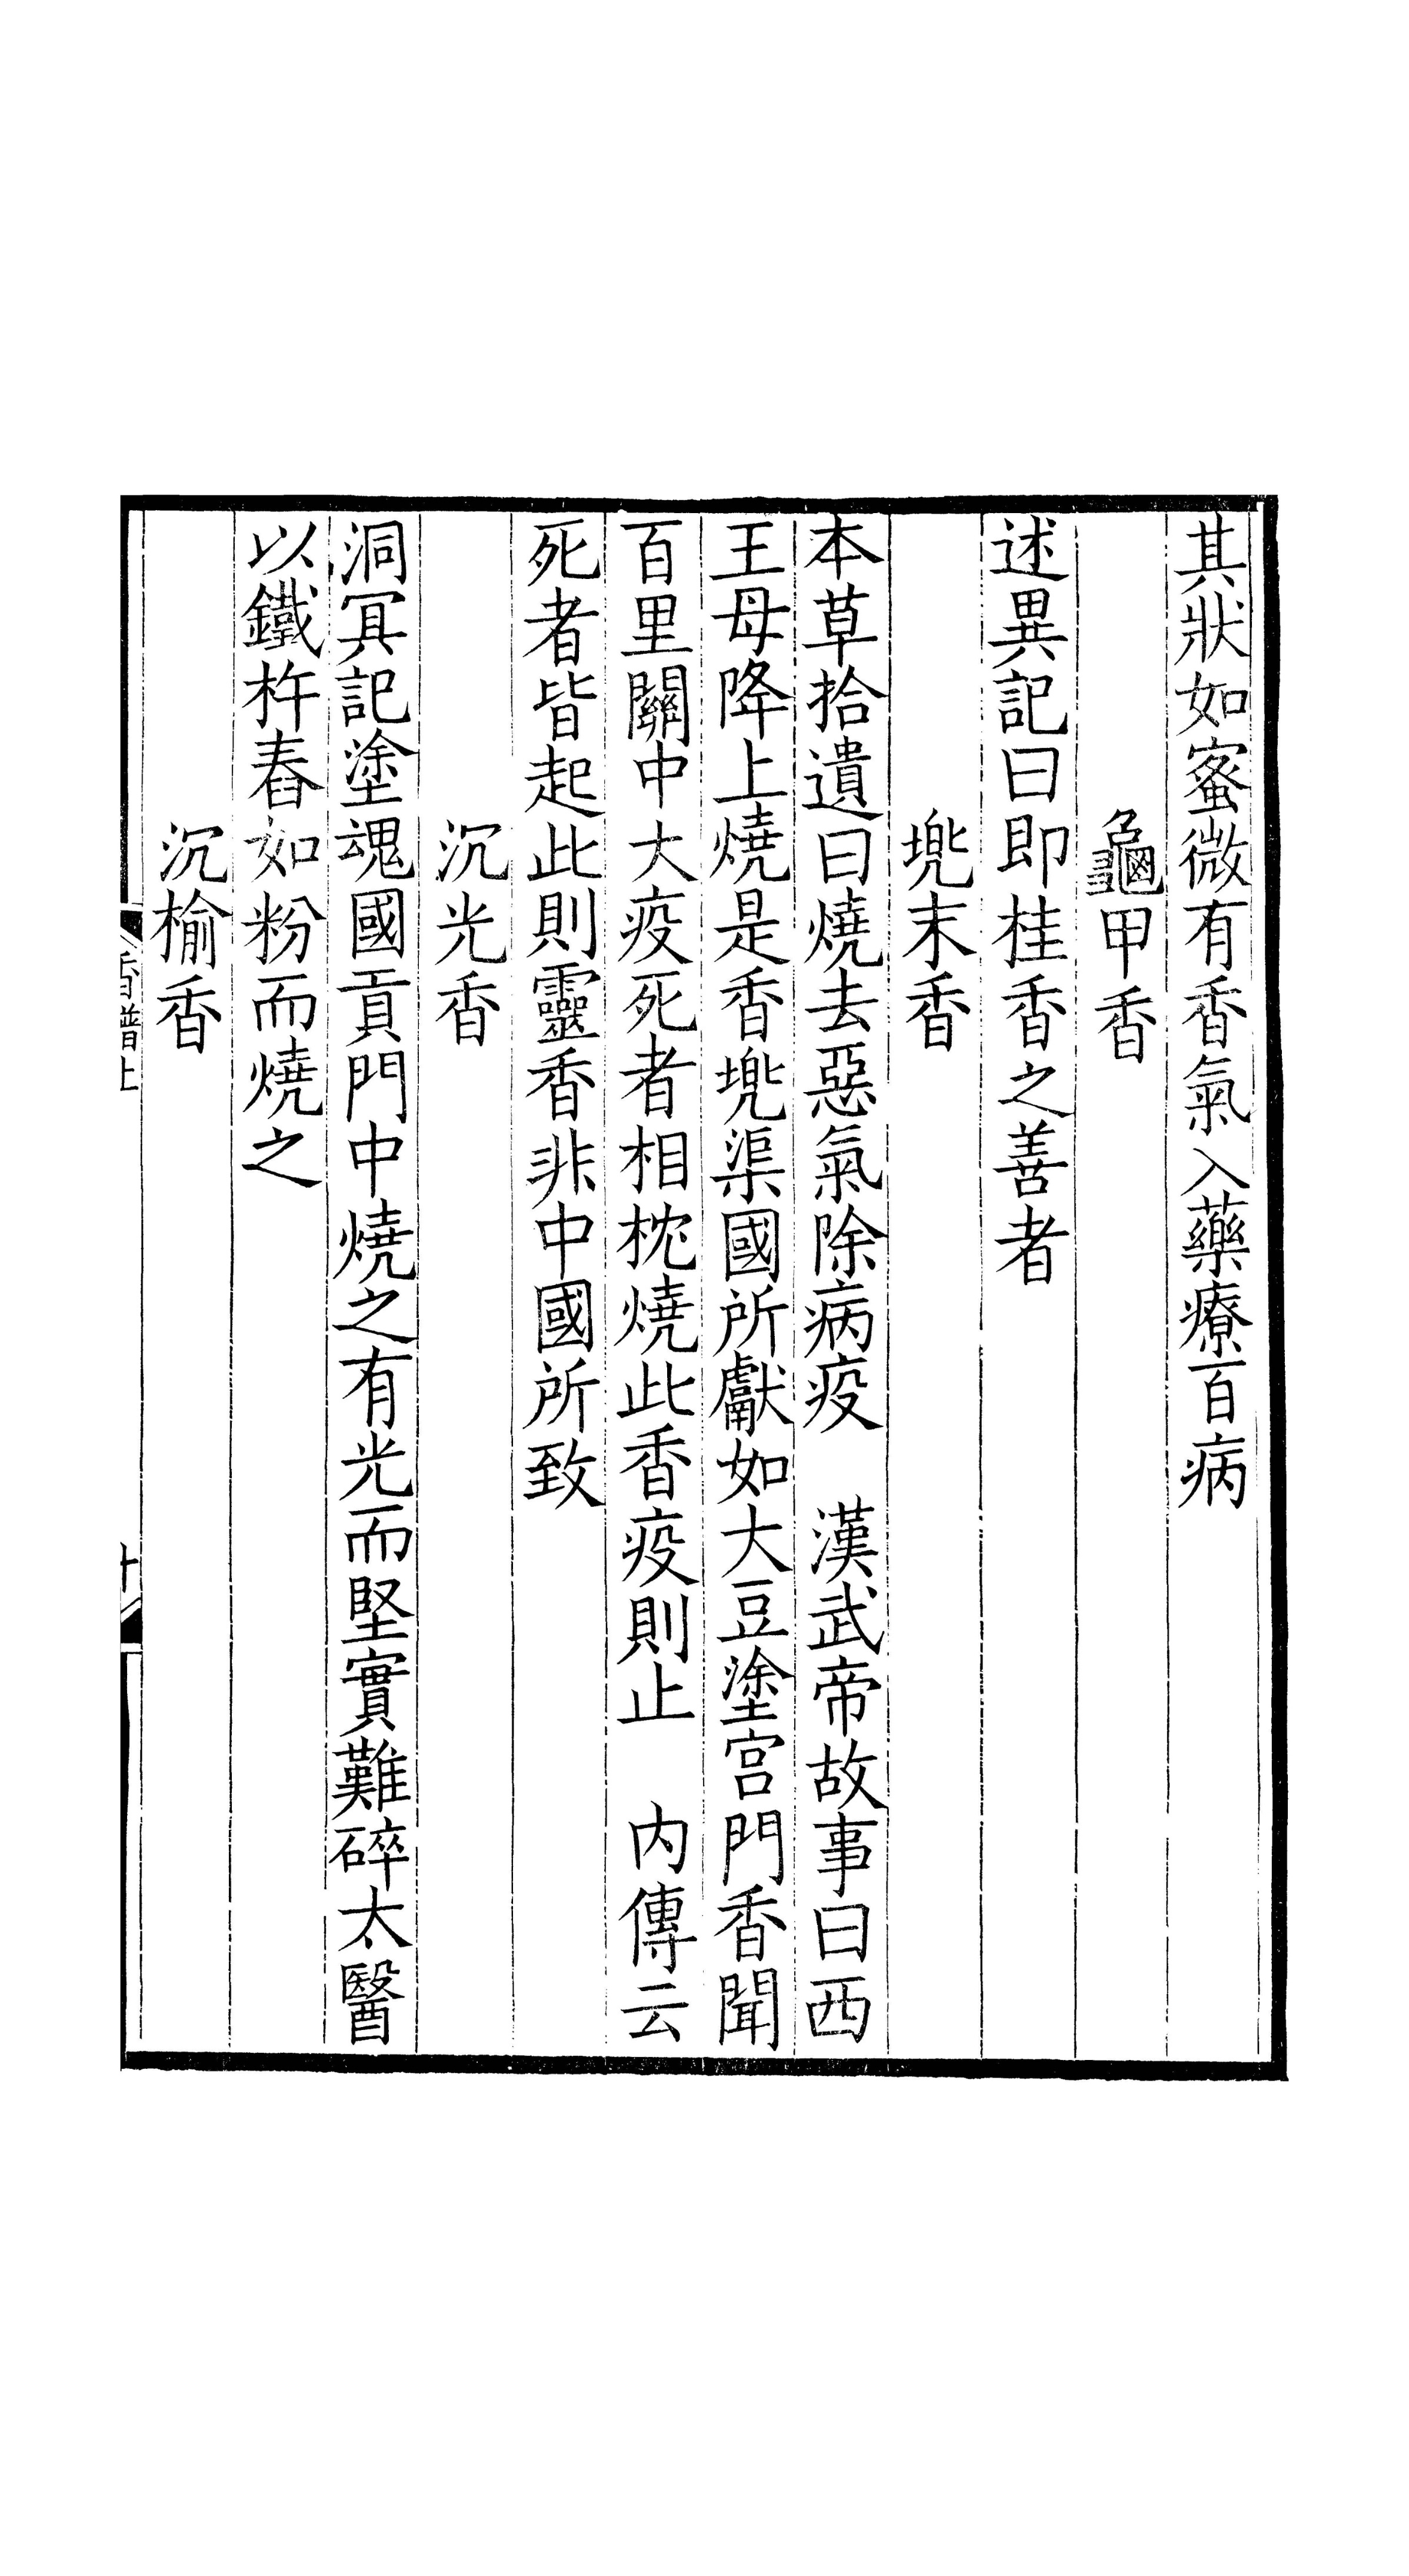 其狀如蜜微有香氣入藥療百病
龜甲香
述異記曰即桂香之善者
兠末香
本草拾遺曰燒去惡氣除病疫　漢武帝故事曰西
王母降上燒是香兠渠國所獻如大豆塗宮門香聞
百里關中大疫死者相枕燒此香疫則止　内傳云
死者皆起此則靈香非中國所致
沉光香
洞冥記塗魂國貢門中燒之有光而堅實難碎太醫
以鐵杵舂如粉而燒之
沉榆香
香譜上
十